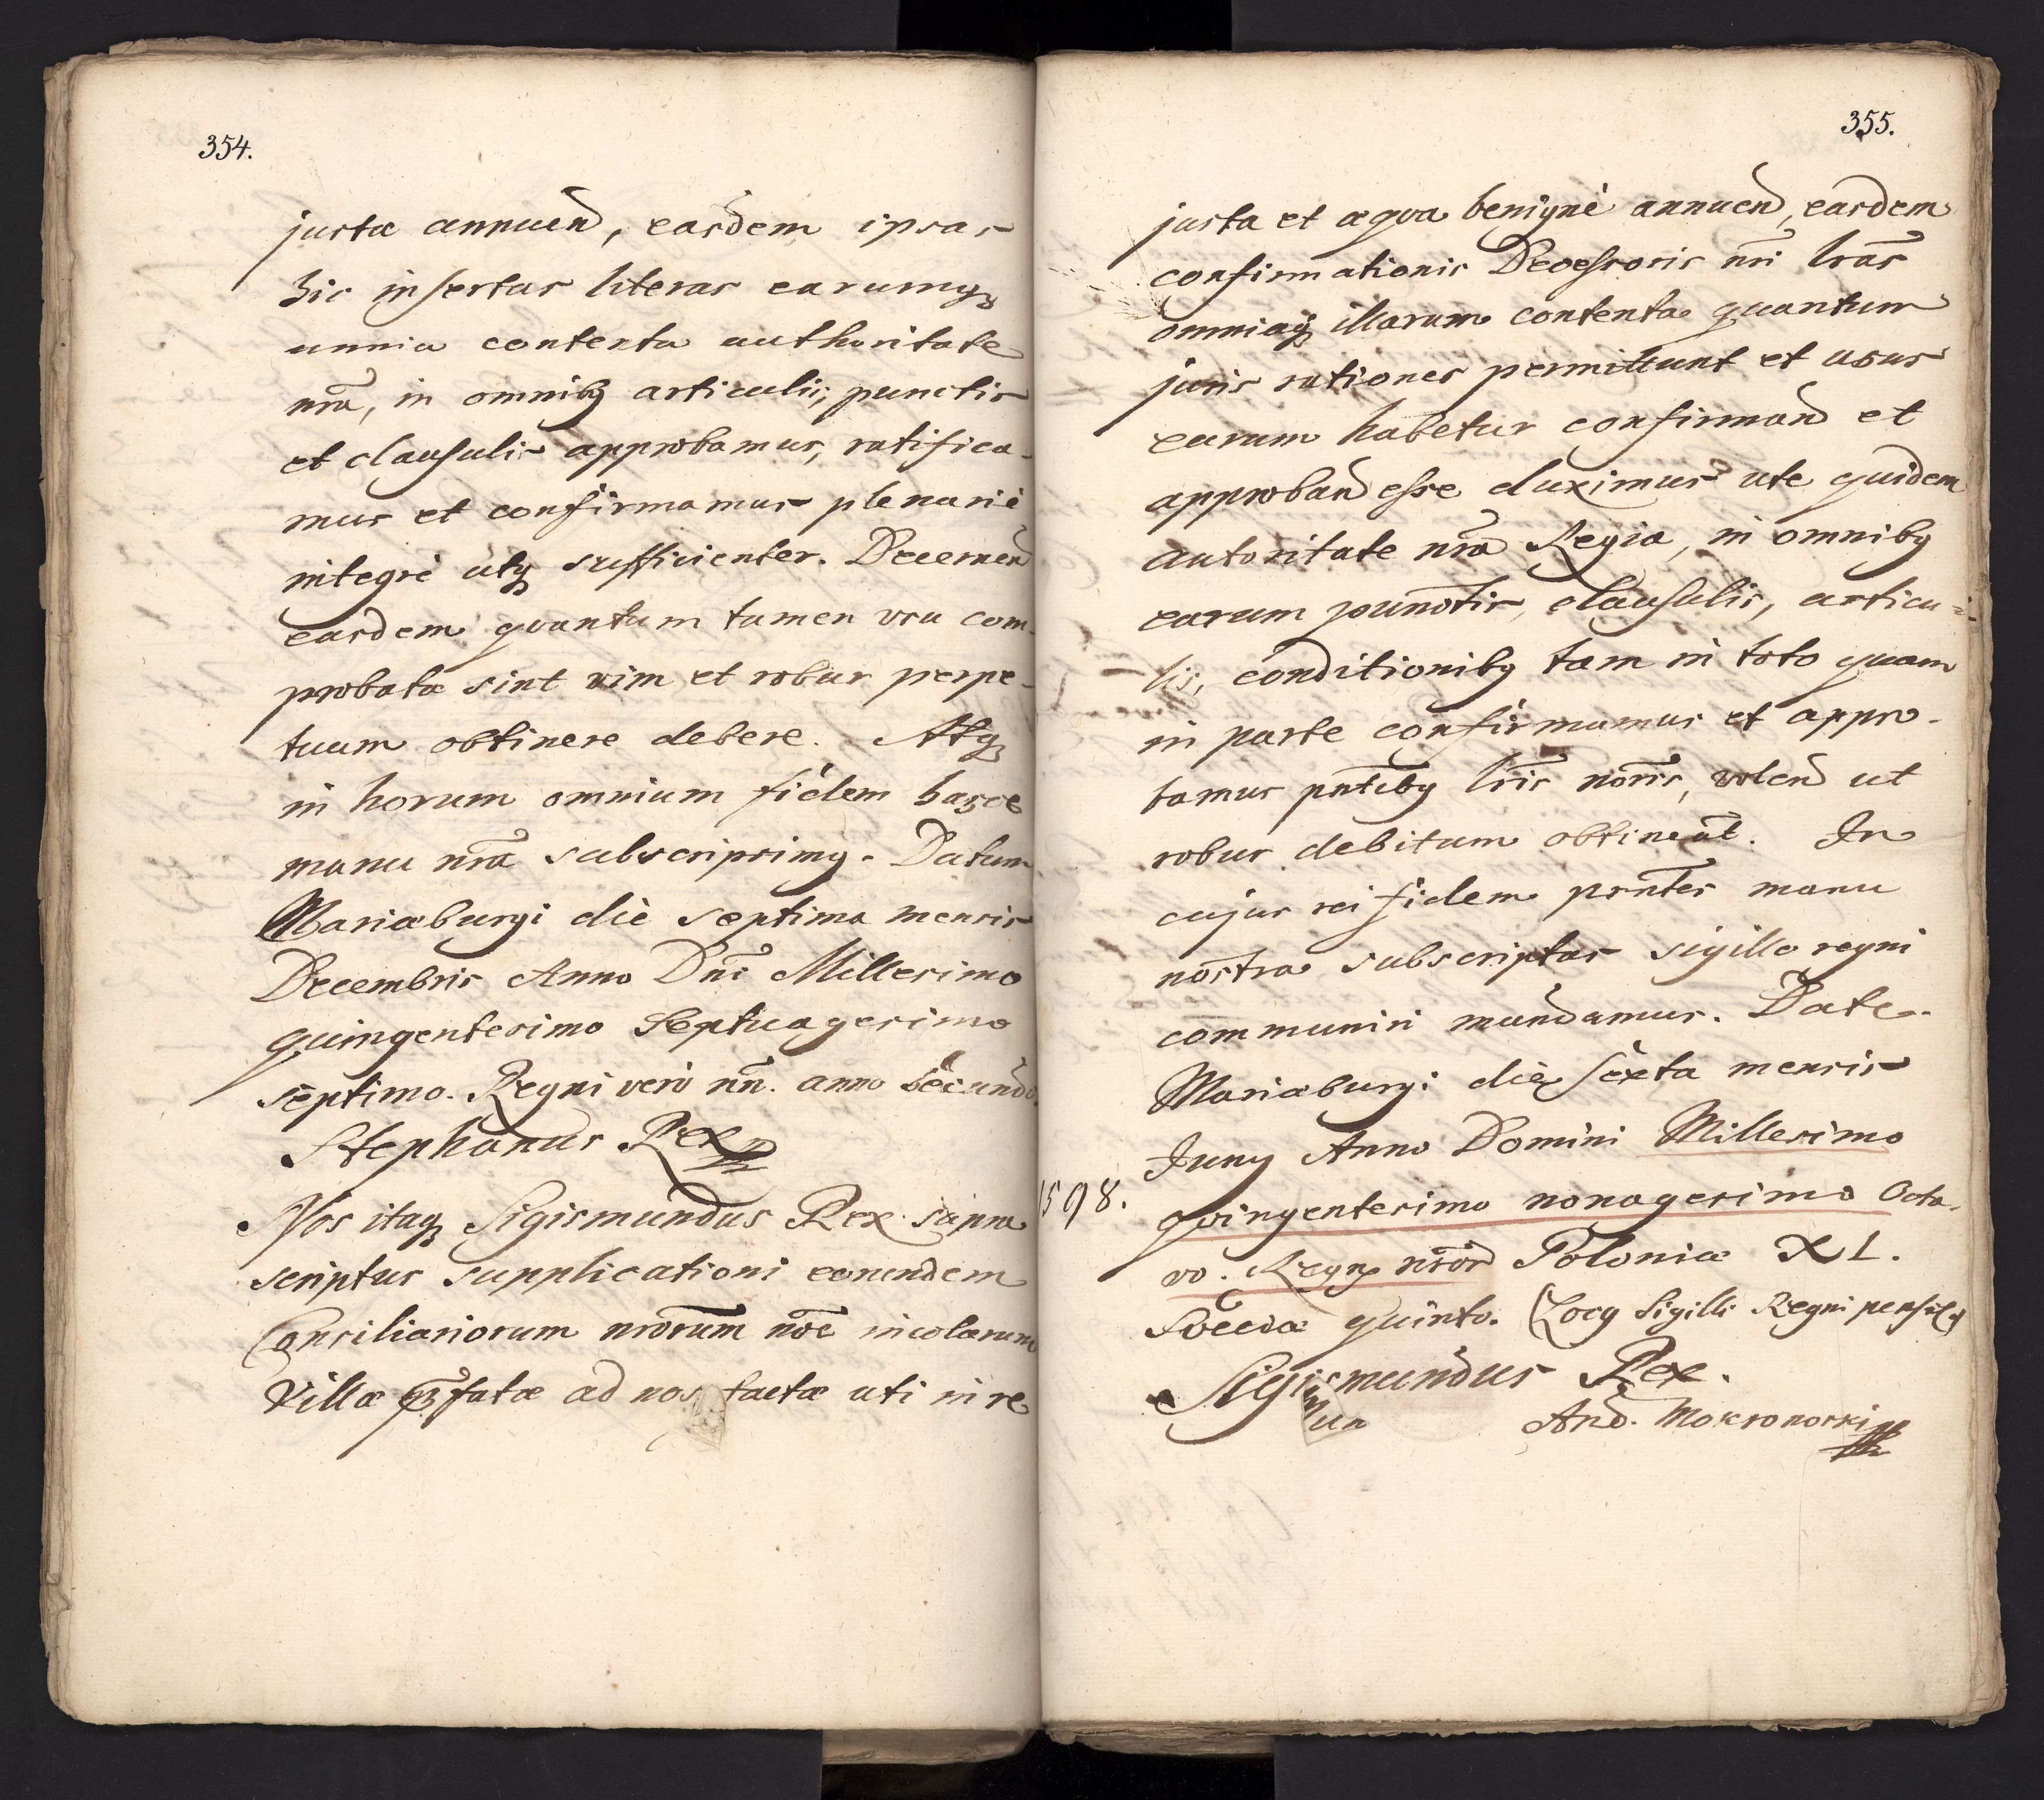 354.
justæ annuend, easdem ipsas
hic insertas literas earumq₃
omnia contenta authoritate
nrã, in omnibꝫ articulis, punctis
et clausulis approbamus, ratifica-
mus et confirmamus plenariè
integrè atq₃ sufficienter. Decernend
easdem quantum tamen usu com-
probatæ sint vim et robur perpe-
tuum obtinere debere. Atq₃
in horum omnium fidem hasce
manu nrã subscripsimꝰ. Datum
Mariæburgi diè septima mensis
Decembris Anno Dnĩ Millesimo
quingentesimo Septuagesimo
septimo. Regni verò nñ. anno secundo.
Stephanus Rex
Nos itaq₃ Sigismundus Rex supra
scriptus supplicationi eorundem
Consiliariorum nrõrum nõe incolarum
Villæ præfatæ ad nos factæ uti in re
355.
justa et æqva benignè annuend, easdem
confirmationis Decessoris nri lrãs
omniaq₃ illarum contenta quantum
juris rationes permittunt et usus
earum habetur confirmand et
approband esse duximus ute quidem
autoritate nrã Regia, in omnibꝰ
earum punctis, clausulis, articu-
lis, conditionibꝰ tam in toto quam
in parte confirmamus et appro-
bamus pntibꝰ lris noris, volend ut
robur debitum obtineãt. In
cujus rei fidem prñtes manu
nostra subscriptas sigillo regni
communiri mandamus. Datæ
Mariæburgi die sexta mensis
Juny Anno Domini Millesimo
1598. qvingentesimo nonagesimo Octa-
vo. Regnꝝ nrõr Poloniæ XI.
Sveciæ quinto. (Locꝰ Sigilli Regni pensilꝭ)
Sigismundus Rex.
And. Mokronorski